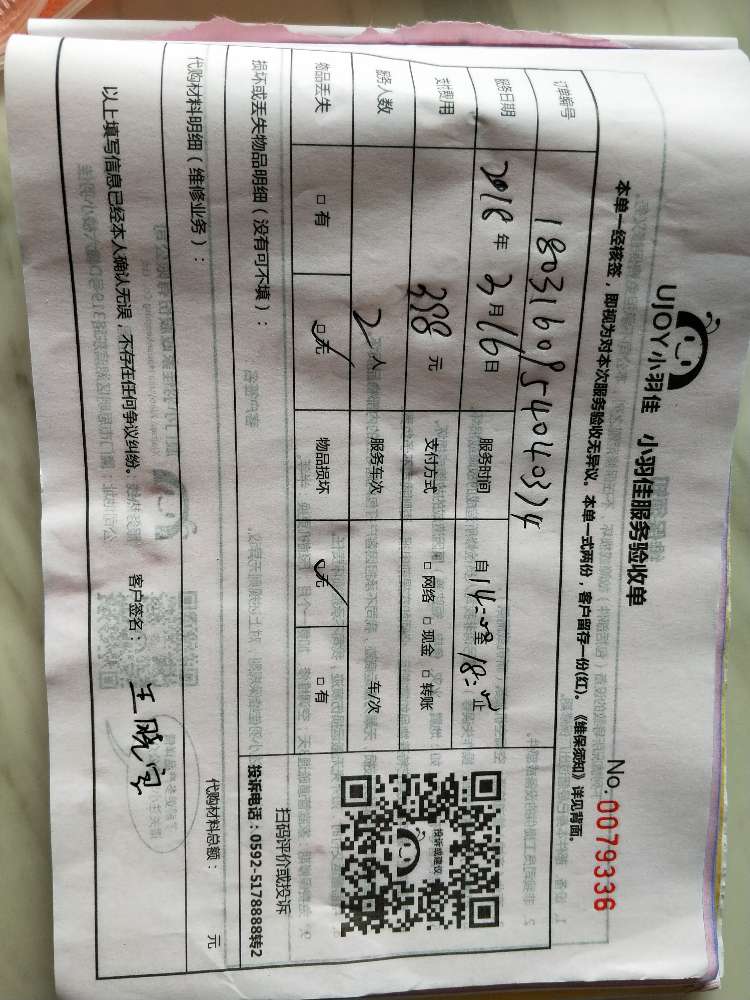 UJOY小羽佳 小羽佳服务验收单
No.0079336
本单一经核签，即视为对本次服务验收无异议。本单一式两份，客户留存一份(红)。《维保须知》详见背面。
订单编号 1803160954040374
服务日期 2018年3月16日 服务时间 自14:00至18:00止
支付费用 398元 支付方式 □网络 □现金 □转账
服务人数 2人 服务车次 车/次
物品丢失 □有 ☑无 物品损坏 ☑无 □有
投诉或建议
扫码评价或投诉
投诉电话：0592-5178888转2
损坏或丢失物品明细（没有可不填）：
代购材料明细（维修业务）： 代购材料总额： 元
以上填写信息已经本人确认无误，不存在任何争议纠纷。 客户签名：